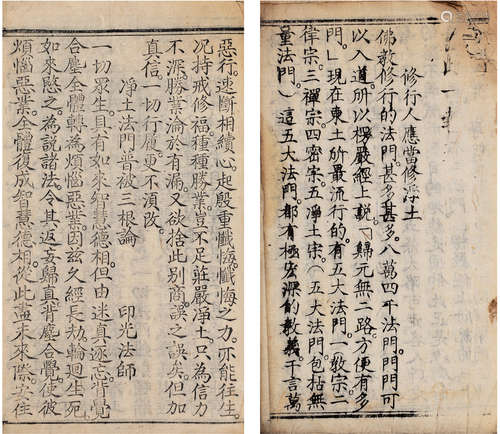 修行人應當修淨土
佛教修行的法門。甚多甚多。八萬四千法門。門門可
以入道。所以楞嚴經上說。「歸元無二路。方便有多
門。」現在東土所最流行的。有五大法門。一教宗二
律宗。三禪宗四密宗。五淨土宗。(五大法門。包括無
量法門。)這五大法門。都有極宏深的教義。千言萬
惡行。速斷相續心。起殷重懺悔。懺悔之力。亦能往生。
況持戒修福。種種勝業。豈不足莊嚴淨土。只為信力
不深。勝業淪於有漏。又欲捨此別商。誤之誤矣。但加
真信。一切行履。更不須改。
淨土法門普被三根論
印光法師
一切眾生。具有如來智慧德相。但由迷真逐妄。背覺
合塵。全體轉為煩惱惡業。因茲久經長劫。輪迴生死。
如來愍之。為說諸法。令其返妄歸真。背塵合覺。使彼
煩惱惡業。全體復成智慧德相。從此盡未來際。安住